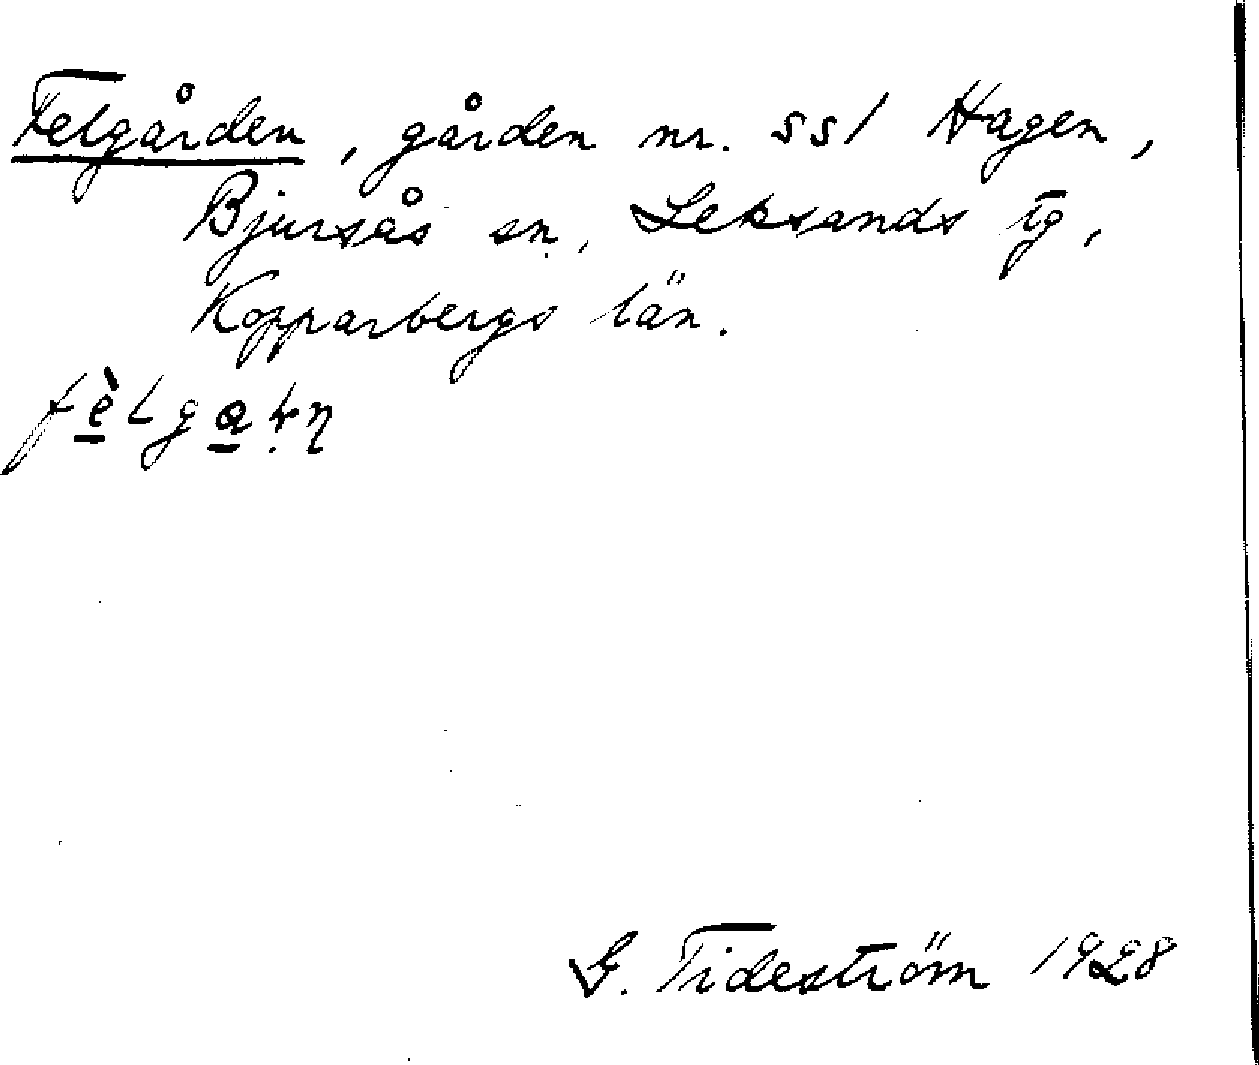 Felgården, gården nr. 551 Hagen,
Bjursås sn, Leksands tg,
Kopparbergs län.
G. Tideström 1928